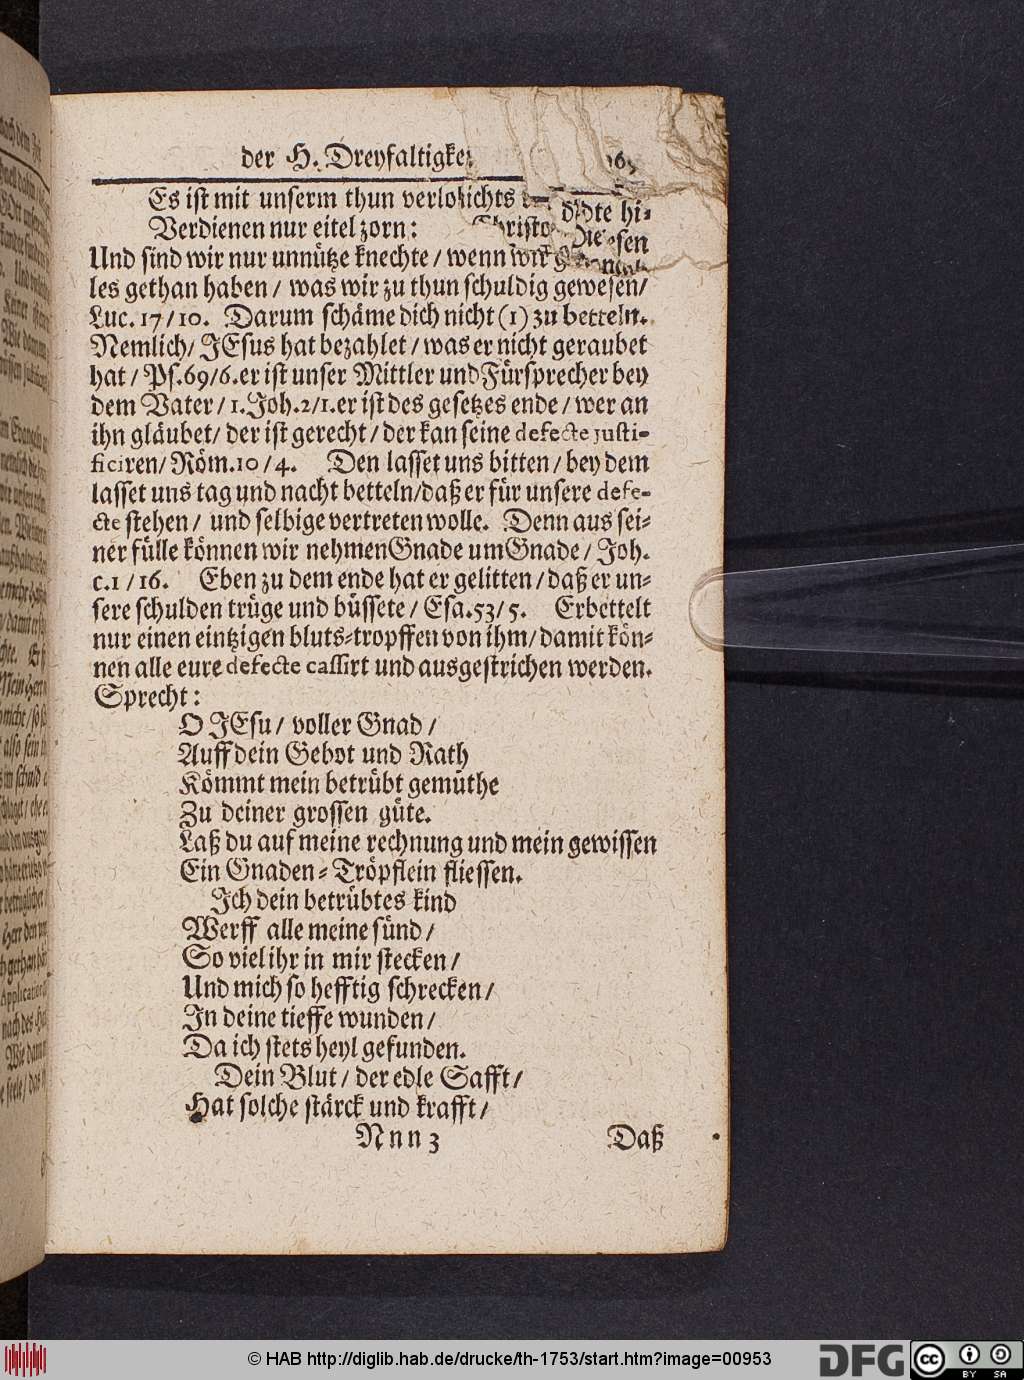 der H. Dreyfaltigke
Es ist mit unserm thun verlohrnichts
Verdienen nur eitel zorn:
Und sind wir nur unnütze knechte / wenn wir
les gethan haben / was wir zu thun schuldig gewesen /
Luc. 17/10. Darum schäme dich nicht (1) zu betteln.
Nemlich / JEsus hat bezahlet / was er nicht geraubet
hat / Ps. 69/6. er ist unser Mittler und Fürsprecher bey
dem Vater / 1. Joh. 2/1. er ist des gesetzes ende / wer an
ihn gläubet / der ist gerecht / der kan seine defecte justi-
ficiren / Röm. 10/4. Den lasset uns bitten / bey dem
lasset uns tag und nacht betteln / daß er für unsere defe-
cte stehen / und selbige vertreten wolle. Denn aus sei-
ner fülle können wir nehmen Gnade um Gnade / Joh.
c. 1/16. Eben zu dem ende hat er gelitten / daß er un-
sere schulden trüge und büssete / Esa. 53/5. Erbettelt
nur einen eintzigen bluts-tropffen von ihm / damit kön-
nen alle eure defecte cassirt und ausgestrichen werden.
Sprecht:
O JEsu / voller Gnad /
Auff dein Gebot und Rath
Kömmt mein betrübt gemüthe
Zu deiner grossen güte.
Laß du auf meine rechnung und mein gewissen
Ein Gnaden-Tröpflein fliessen.
Ich dein betrübtes kind
Werff alle meine sünd /
So viel ihr in mir stecken /
Und mich so hefftig schrecken /
In deine tieffe wunden /
Da ich stets heyl gefunden.
Dein Blut / der edle Safft /
Hat solche stärck und krafft /
Nnn 3 Daß
© HAB http://diglib.hab.de/drucke/th-1753/start.htm?image=00953
DFG cc BY SA